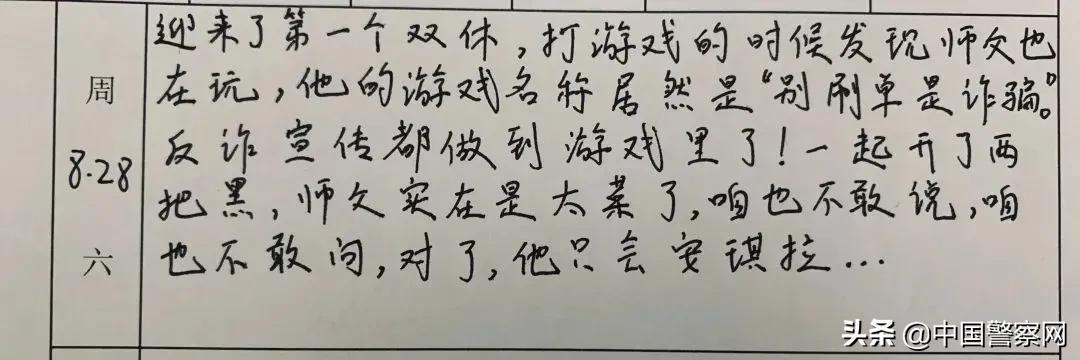 迎来了第一个双休，打游戏的时候发现师父也
在玩，他的游戏名称居然是“别刷单是诈骗。”
反诈宣传都做到游戏里了！一起开了两
把黑，师父实在是太菜了，咱也不敢说，咱
也不敢问，对了，他只会安琪拉...
周
8.28
六
头条 @中国警察网